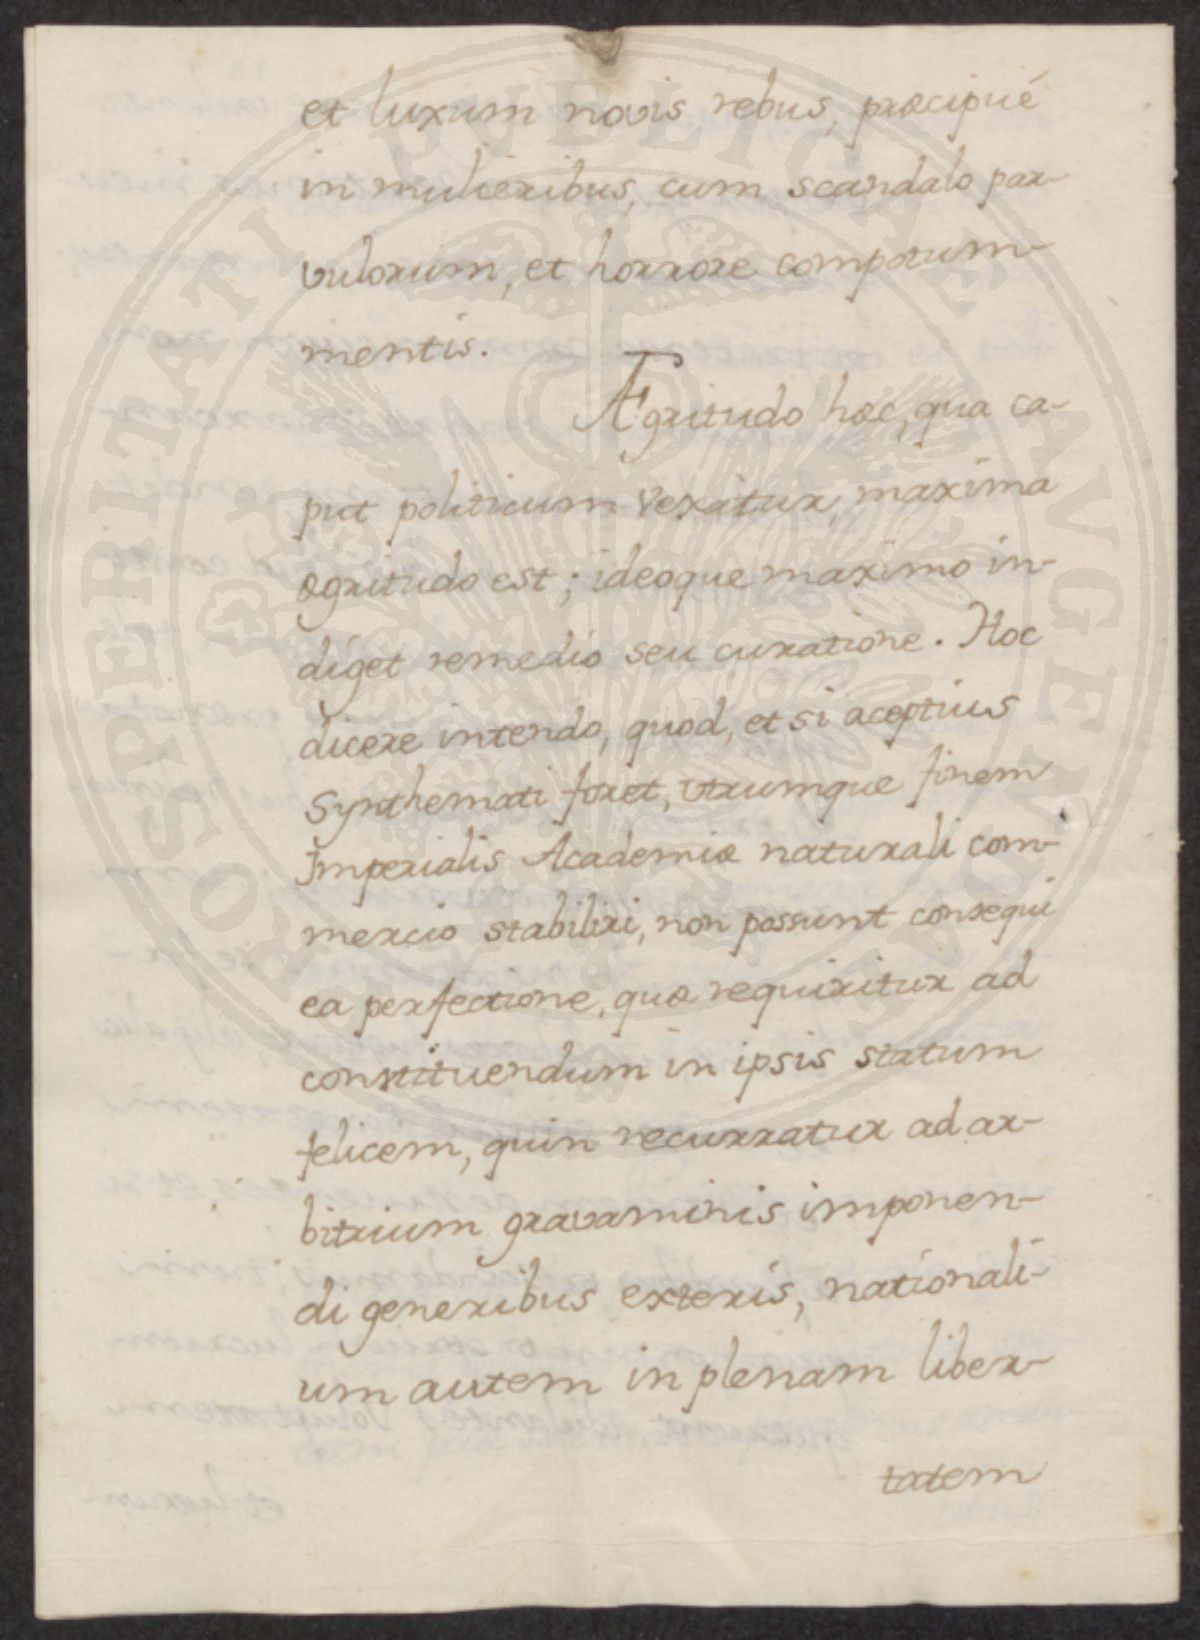 et luxum novis rebus, præcipué
in mulieribus, cum scandalo par-
vulorum, et horrore compotum
mentis.
Ægritudo hæc, qua ca-
put politicum vexatur, maxima
ægritudo est; ideoque maximo in-
diget remedio seu curatione. Hoc
dicere intendo, quod, et si aceptius
Synthemati foret, utrumque finem
Imperialis Academiæ naturali com-
mercio stabiliri, non possunt consequi
ea perfectione, quæ requiritur ad
constituendum in ipsis statum
felicem, quin recurratur ad ar-
bitrium gravaminis imponen-
di generibus exteris, nationali-
um autem in plenam liber-
tatem
PROSPERITATI PVBLICAE AVGENDAE